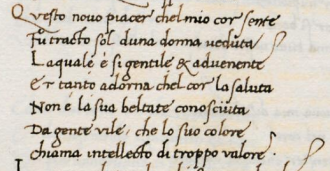 Questo novo piacer chel mio cor sente
Fu tracto sol duna donna veduta
Laquale é si gentile & advenente
Et tanto adorna chel cor la saluta
Non é la sua beltate conosciuta
Da gente vile, che lo suo colore
chiama intellecto di troppo valore